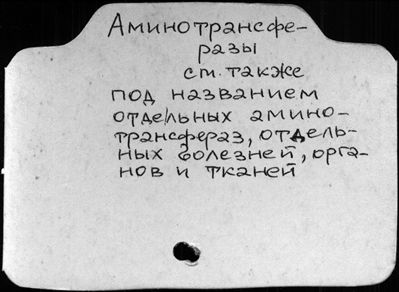 Аминотрансфе-
разы
см. также
под названием
отдельных амино-
трансфераз, отдель-
ных болезней, орга-
нов и тканей